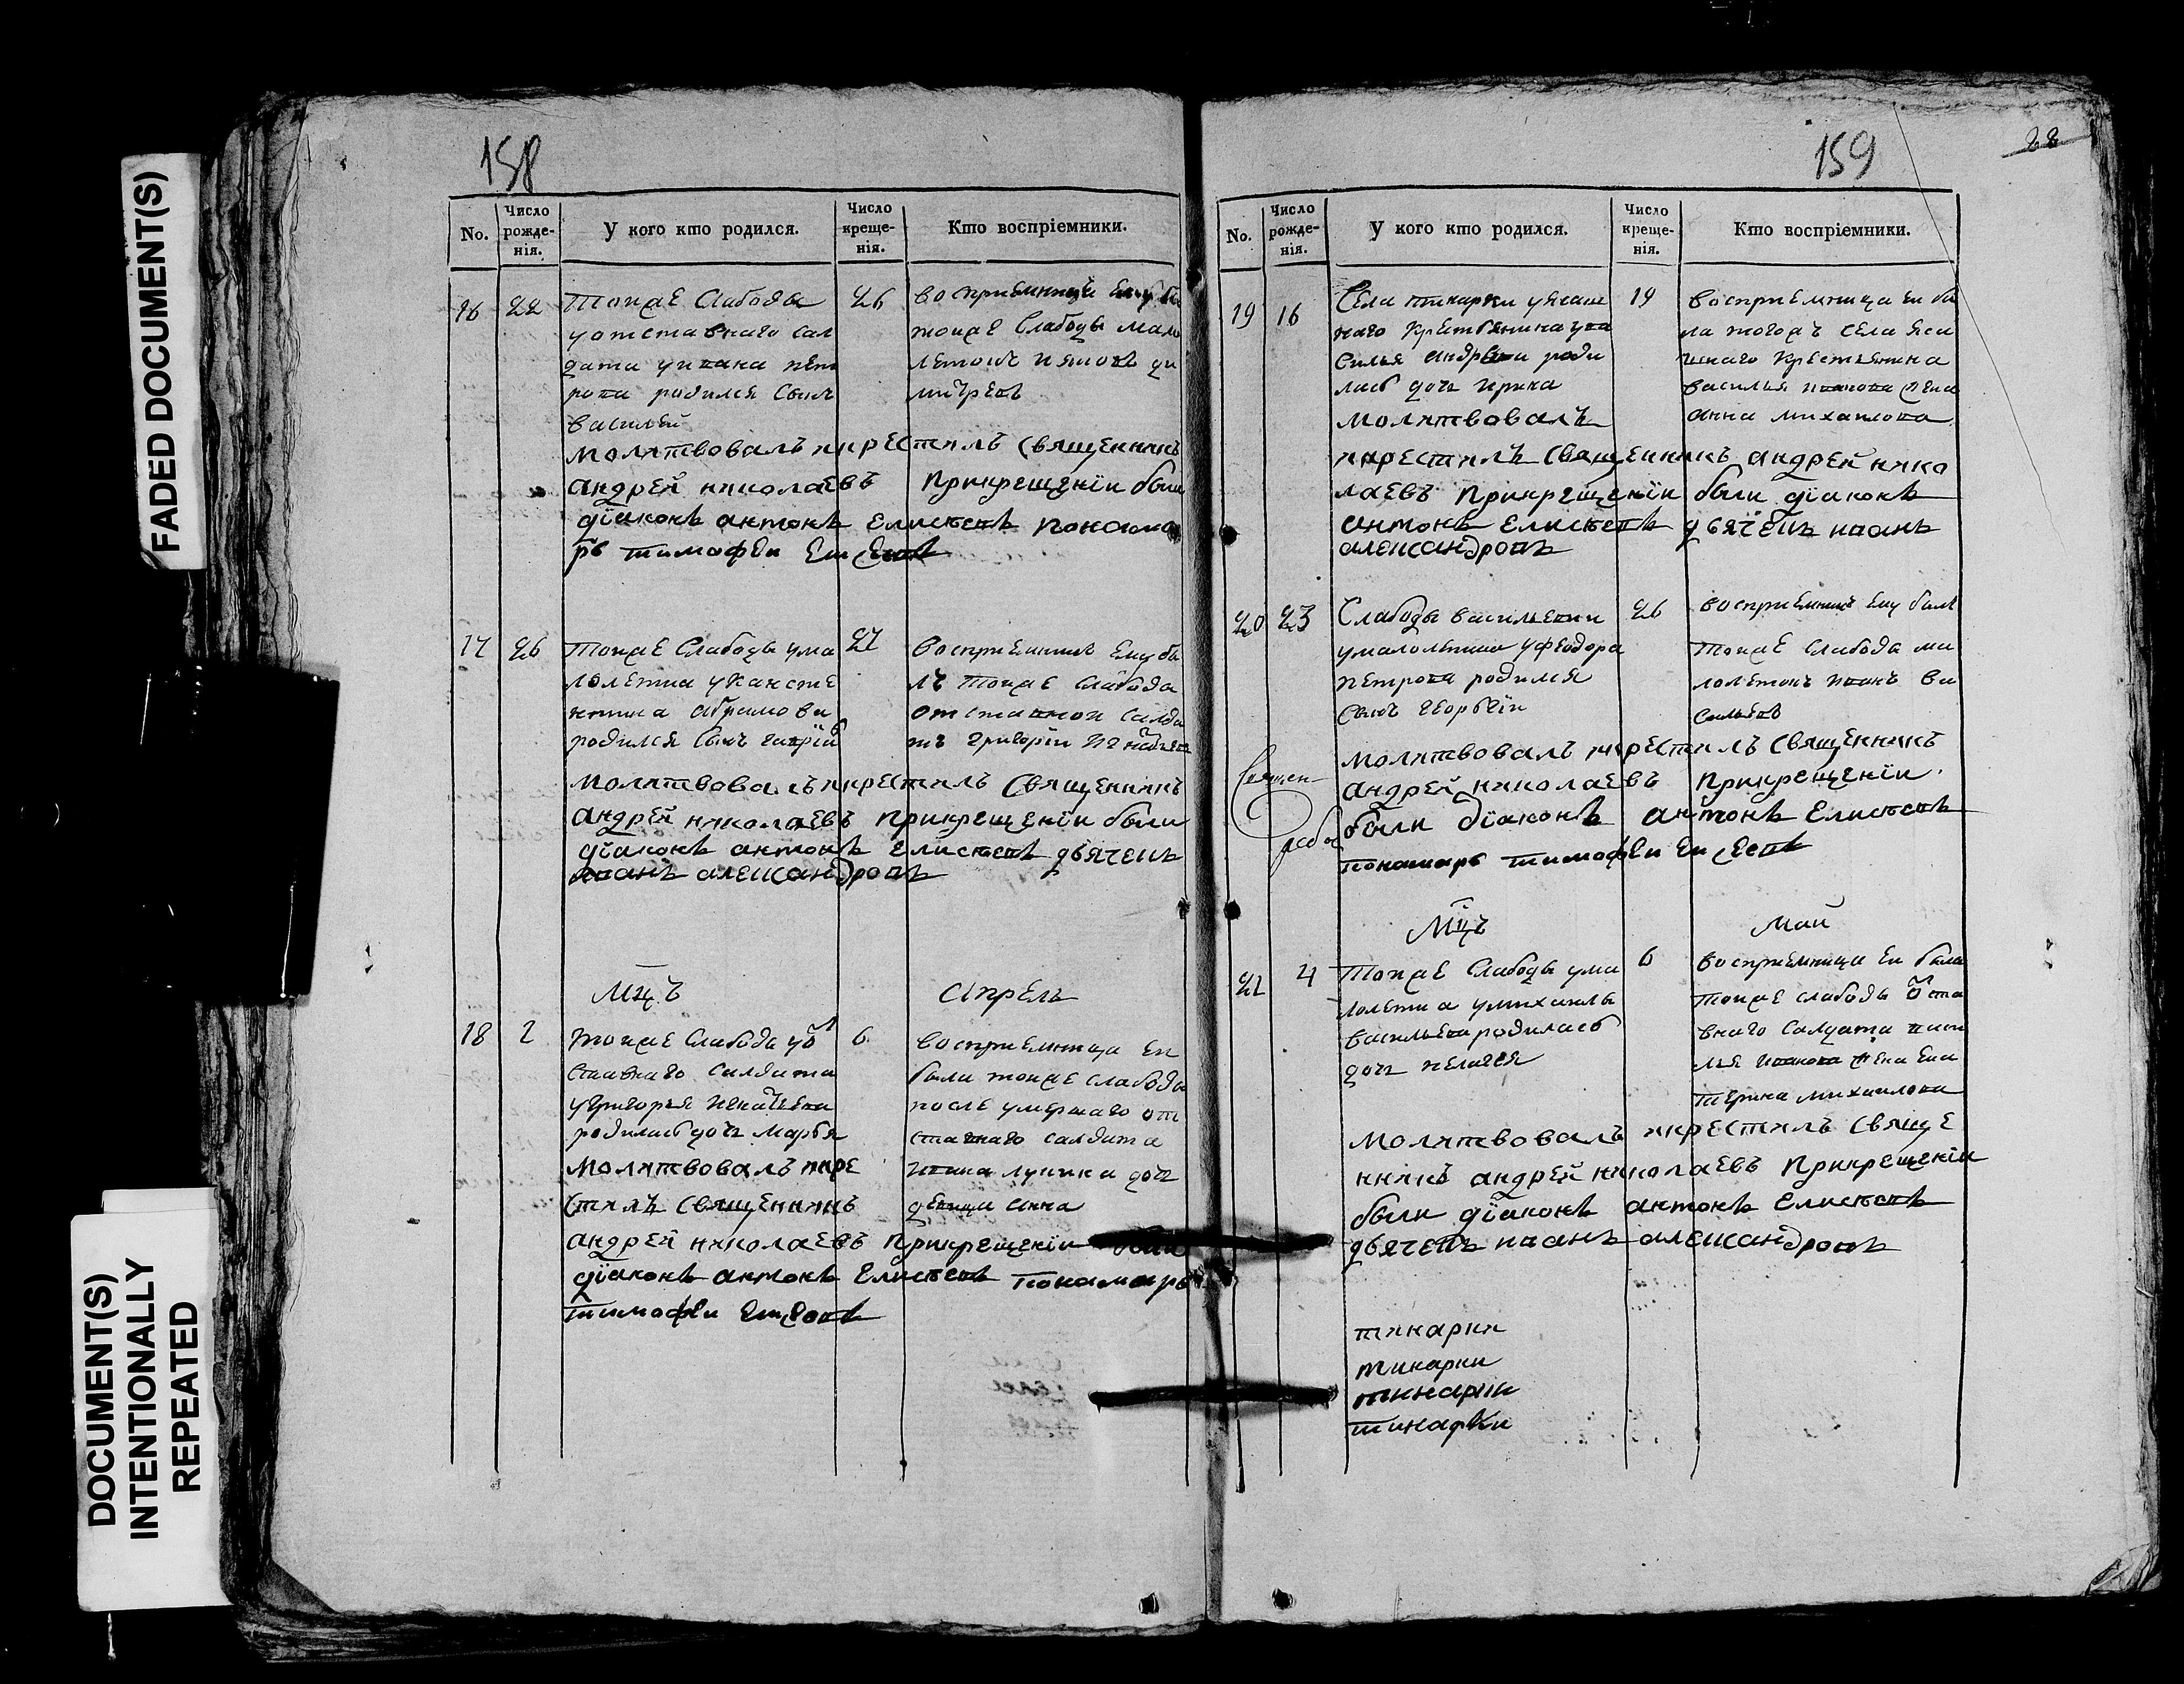 FADED DOCUMENT(S)
DOCUMENT(S)
INTENTIONALLY
REPEATED
158
No.
Число рожде-нія.
У кого кто родился.
Число креще-нія.
Кто воспріемники.
16 22 Тоиже Слабоды 26
уотставнаго сал
дата уивана пет
рова родился сынъ
василей
восприемникъ ему бы
тоиже Слабоды мало
летокъ ияковъ ди
митревъ
молитвовалъ икрестилъ священникъ
андрей николаевъ прикрещенїи были
дїаконъ антонъ елисеевъ понама
рь тимофеи
17 26 Тоиже Слабоды ума 27
лолетка укансте
нтина абрамова
родился сынъ
восприемникъ ему бы
лъ тоиже слабоды
отставнои салда
тъ григорїи
молитвовалъ икрестилъ священникъ
андрей николаевъ прикрещенїи были
дїаконъ антонъ елисеевъ дьячекъ
иванъ александровъ
Мцъ апрель
18 2 тоиже Слабоды уо 6
ставнаго салдата
угригорья
родилась дочь марья
восприемница еи
была тоиже слабоды
после умершаго от
ставнаго салдата
ивана лукина дочь
девица анна
молитвовалъ икре
стилъ священникъ
андрей николаевъ прикрещенїи были
дїаконъ антонъ елисеевъ понамарь
тимофеи
159
28
No.
Число рожде-нія.
У кого кто родился.
Число креще-нія.
Кто воспріемники.
19 16 Села тинарки уясаш 19
наго крестьянина ува
силья андреева роди
лась дочь ирина
восприемница еи бы
ла тогожъ села яса
шнаго крестьянина
василья иванова жена
анна михаилова
молитвовалъ
икрестилъ священникъ андрей нико
лаевъ прикрещенїи были дїаконъ
антонъ елисеевъ дьячекъ иванъ
александровъ
20 23 Слабоды васильевки 26
умалолетка уфеодора
петрова родился
сынъ георьгїи
восприемникъ ему былъ
тоиже слабоды ма
лолетокъ иванъ ва
сильевъ
молитвовалъ икрестилъ священникъ
андрей николаевъ прикрещенїи
были дїаконъ антонъ елисеевъ
понамарь тимофеи
Мцъ маи
21 4 Тоиже Слабоды ума 6
лолетка умихаила
васильева родилась
дочь пелагея
восприемница еи была
тоиже слабоды ота
внаго салдата васи
лья иванова жена ека
терина михаилова
молитвовалъ икрестилъ свяще
нникъ андрей николаевъ прикрещенїи
были дїаконъ антонъ елисеевъ
дьячекъ иванъ александровъ
тинарки
тинарки
тинарки
тинарки